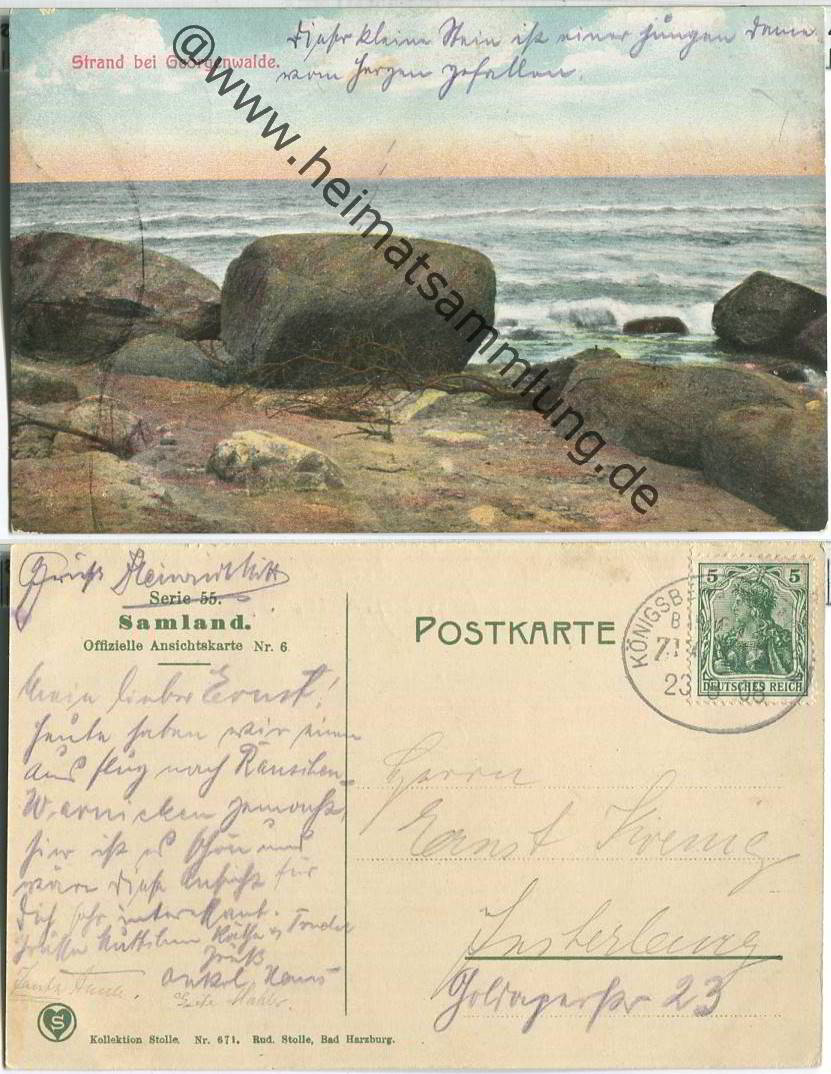 Strand bei Georgenwalde.
Dieser kleine Stein ist einer jungen Dame
vom Herzen gefallen.
@www.heimatsammlung.de
Gruß
Serie 55.
Samland.
Offizielle Ansichtskarte Nr. 6
Mein lieber Ernst!
Heute haben wir einen
Ausflug nach Rauschen-
Warnicken gemacht,
hier ist es schön und
wäre diese Ansicht für
Dich sehr interessant.
Grüße Muttchen Käthe u Trude
Gruß
Onkel Hans
Tante
POSTKARTE
KÖNIGSB
5 5
DEUTSCHES REICH
23
Herrn
Ernst Koenig
Insterburg
Goldaperstr 23
S
Kollektion Stolle. Nr. 671. Rud. Stolle, Bad Harzburg.